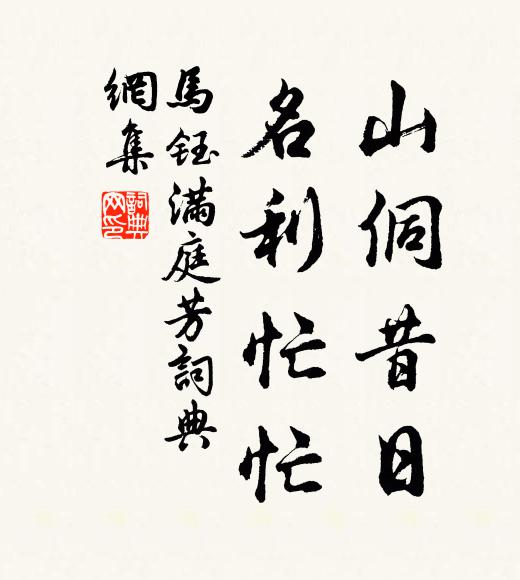 山侗昔日
名利忙忙
馬鈺滿庭芳詞典
網集
詞典網印